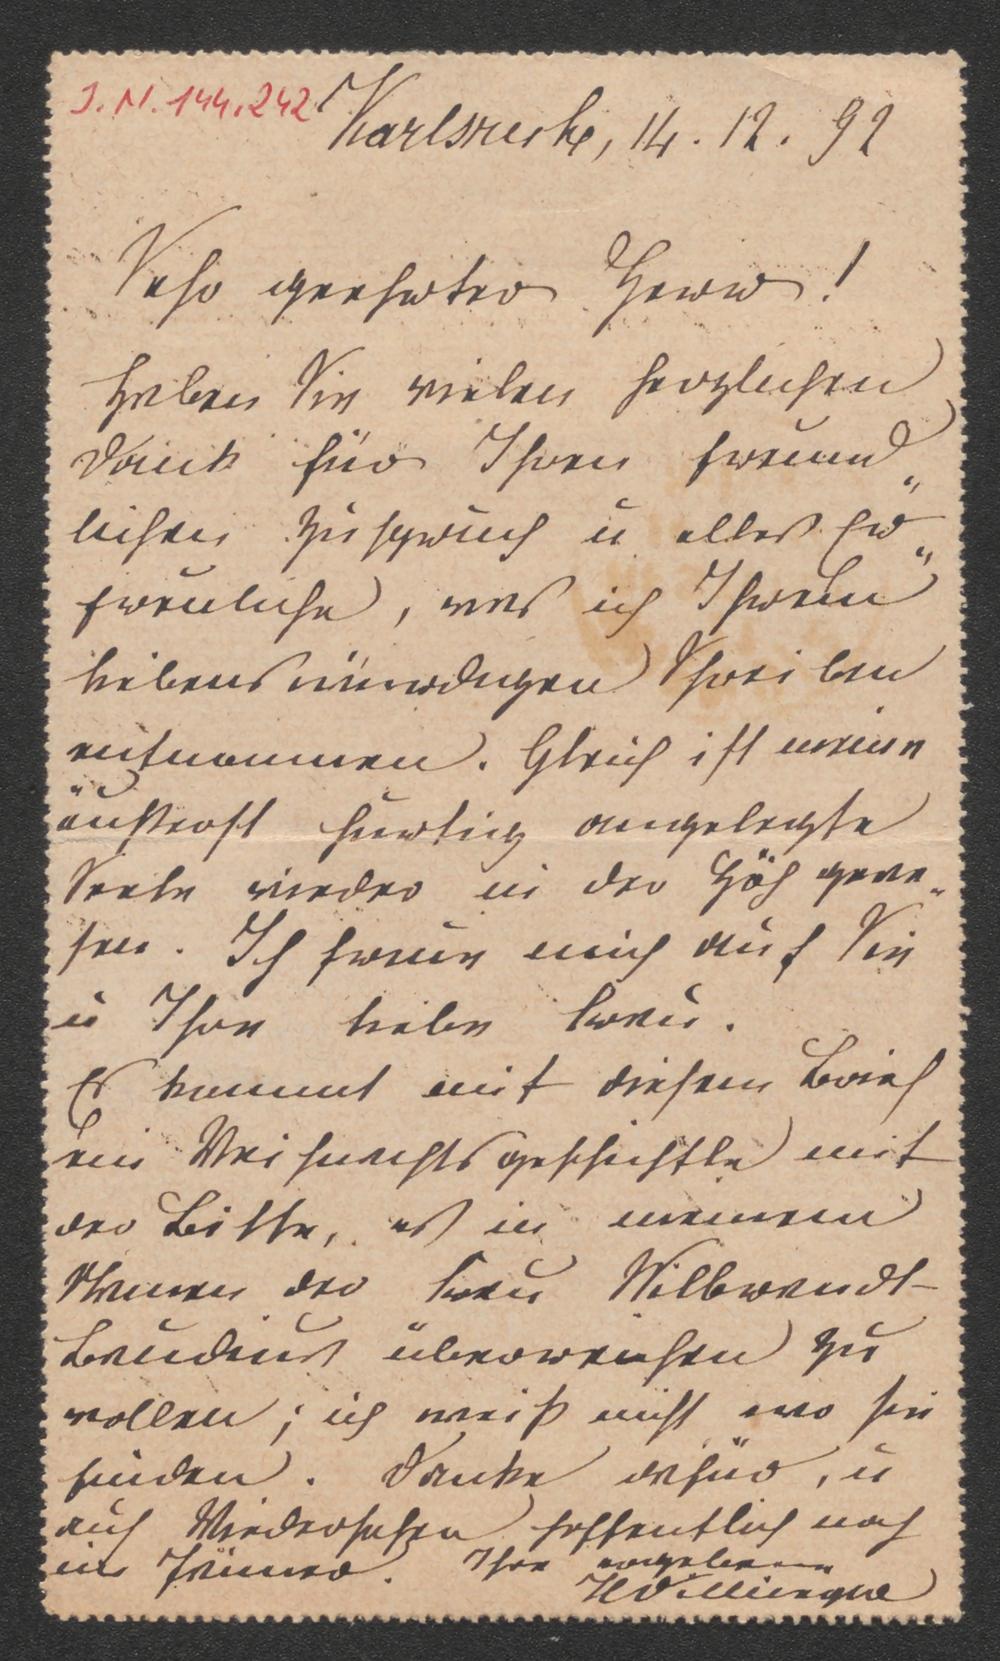 J.N. 144.242
Karlsruhe, 14. 12. 92
Sehr geehrter Herr!
Haben Sie vielen herzlichen
Dank für Ihren freund„
lichen Zuspruch u alles Er„
freuliche, was ich Ihrem
liebenswürdigen Schreiben
entnommen. Gleich ist meine
äußerst angelegte
Seele wieder in der Höh gewe„
sen. Ich freue mich auf Sie
u Ihre liebe Frau.
Es kommt mit diesem Brief
ein Weihnachtsgeschichtle mit
der Bitte, es in meinem
Namen der Frau Wilbrandt-
Baudius überreichen zu
wollen; ich weiß nicht wo sie
finden. Danke dafür, u
auf Wiedersehen hoffentlich noch
im Jänner. Ihre ergebene
HVillinger